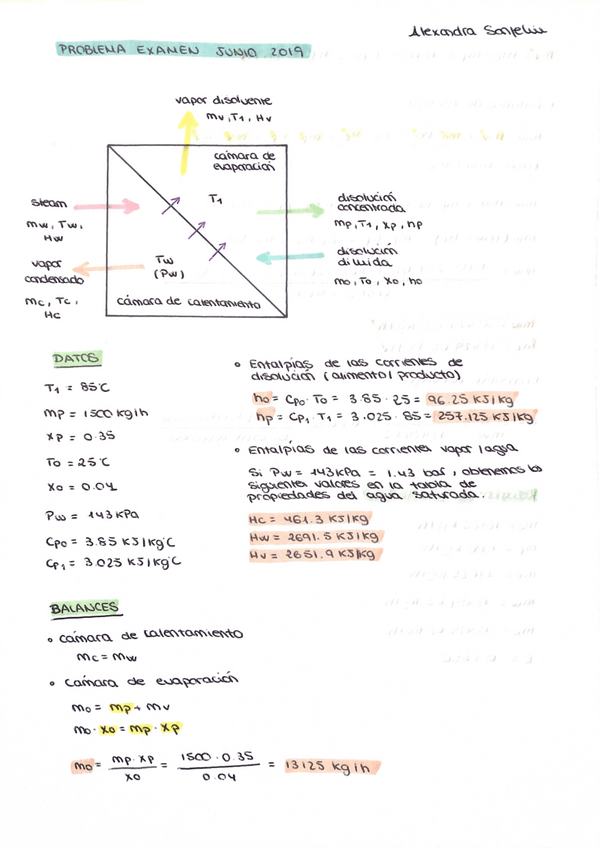 Alexandra
PROBLEMA EXAMEN JUNIO 2019
vapor disolvente
mv, T1, Hv
cámara de
evaporación
steam
mw, Tw,
Hw
T1
disolución
concentrada
mp, T1, xp, hp
vapor
condensado
mc, Tc,
Hc
Tw
(Pw)
disolución
diluida
mo, To, xo, ho
cámara de calentamiento
DATOS
T1 = 85°C
mp = 1500 kg/h
xp = 0.35
To = 25°C
xo = 0.04
Pw = 143 kPa
Cpo = 3.85 KJ/kg°C
Cp1 = 3.025 KJ/kg°C
• Entalpías de las corrientes de
disolución (alimento/producto)
ho = Cpo · To = 3.85 · 25 = 96.25 KJ/kg
hp = Cp1 · T1 = 3.025 · 85 = 257.125 KJ/kg
• Entalpías de las corrientes vapor/agua
Si Pw = 143 kPa = 1.43 bar, obtenemos los
siguientes valores en la tabla de
propiedades del agua saturada.
Hc = 461.3 KJ/kg
Hw = 2691.5 KJ/kg
Hv = 2651.9 KJ/kg
BALANCES
• cámara de calentamiento
mc = mw
• cámara de evaporación
mo = mp + mv
mo · xo = mp · xp
mo = mp · xp / xo = 1500 · 0.35 / 0.04 = 13125 kg/h